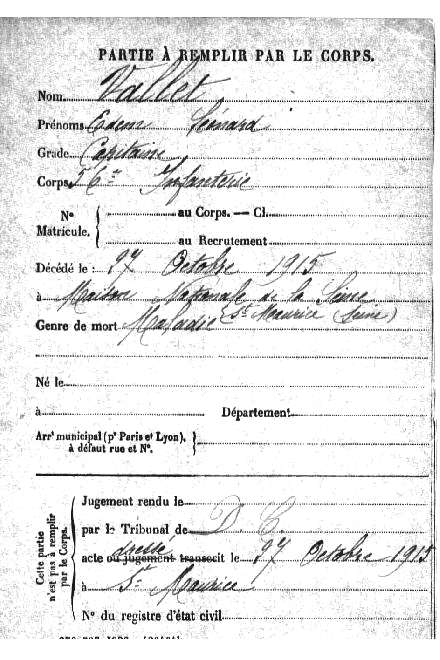 PARTIE À REMPLIR PAR LE CORPS.
Nom Vallet
Prénoms Edem Léonard
Grade Capitaine
Corps 56e Infanterie
No Matricule. { au Corps. — Cl.
au Recrutement
Décédé le : 27 Octobre 1915
à Maison Nationale de la Seine
Genre de mort Maladie (St Maurice (Seine)
Né le
à Département
Arrt municipal (pr Paris et Lyon), à défaut rue et No. }
Cette partie n'est pas à remplir par le Corps. {
Jugement rendu le
par le Tribunal de D. C.
dressé
acte ou jugement transcrit le 27 Octobre 1915
à St Maurice
No du registre d'état civil